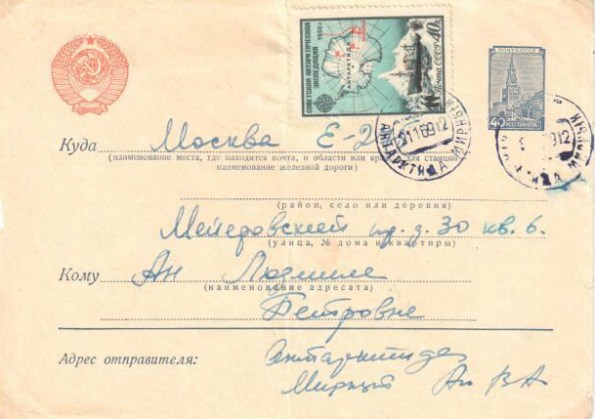 СОВЕТСКАЯ АНТАРКТИЧЕСКАЯ
ЭКСПЕДИЦИЯ
1956 г.
АНТАРКТИДА
40к.
ПОЧТА СССР
ПОЧТА СССР
40 КОПЕЕК
АНТАРКТИДА МИРНЫЙ
АНТАРКТИДА МИРНЫЙ
Куда Москва Е-2
(наименование места, где находится почта, и области или края, а для станции
наименование железной дороги)
(район, село или деревня)
Мейеровский пр. д. 30 кв. 6.
(улица, № дома и квартиры)
Кому Ан Людмиле
(наименование адресата)
Петровне
Адрес отправителя: Антарктида
Мирный Ан В А